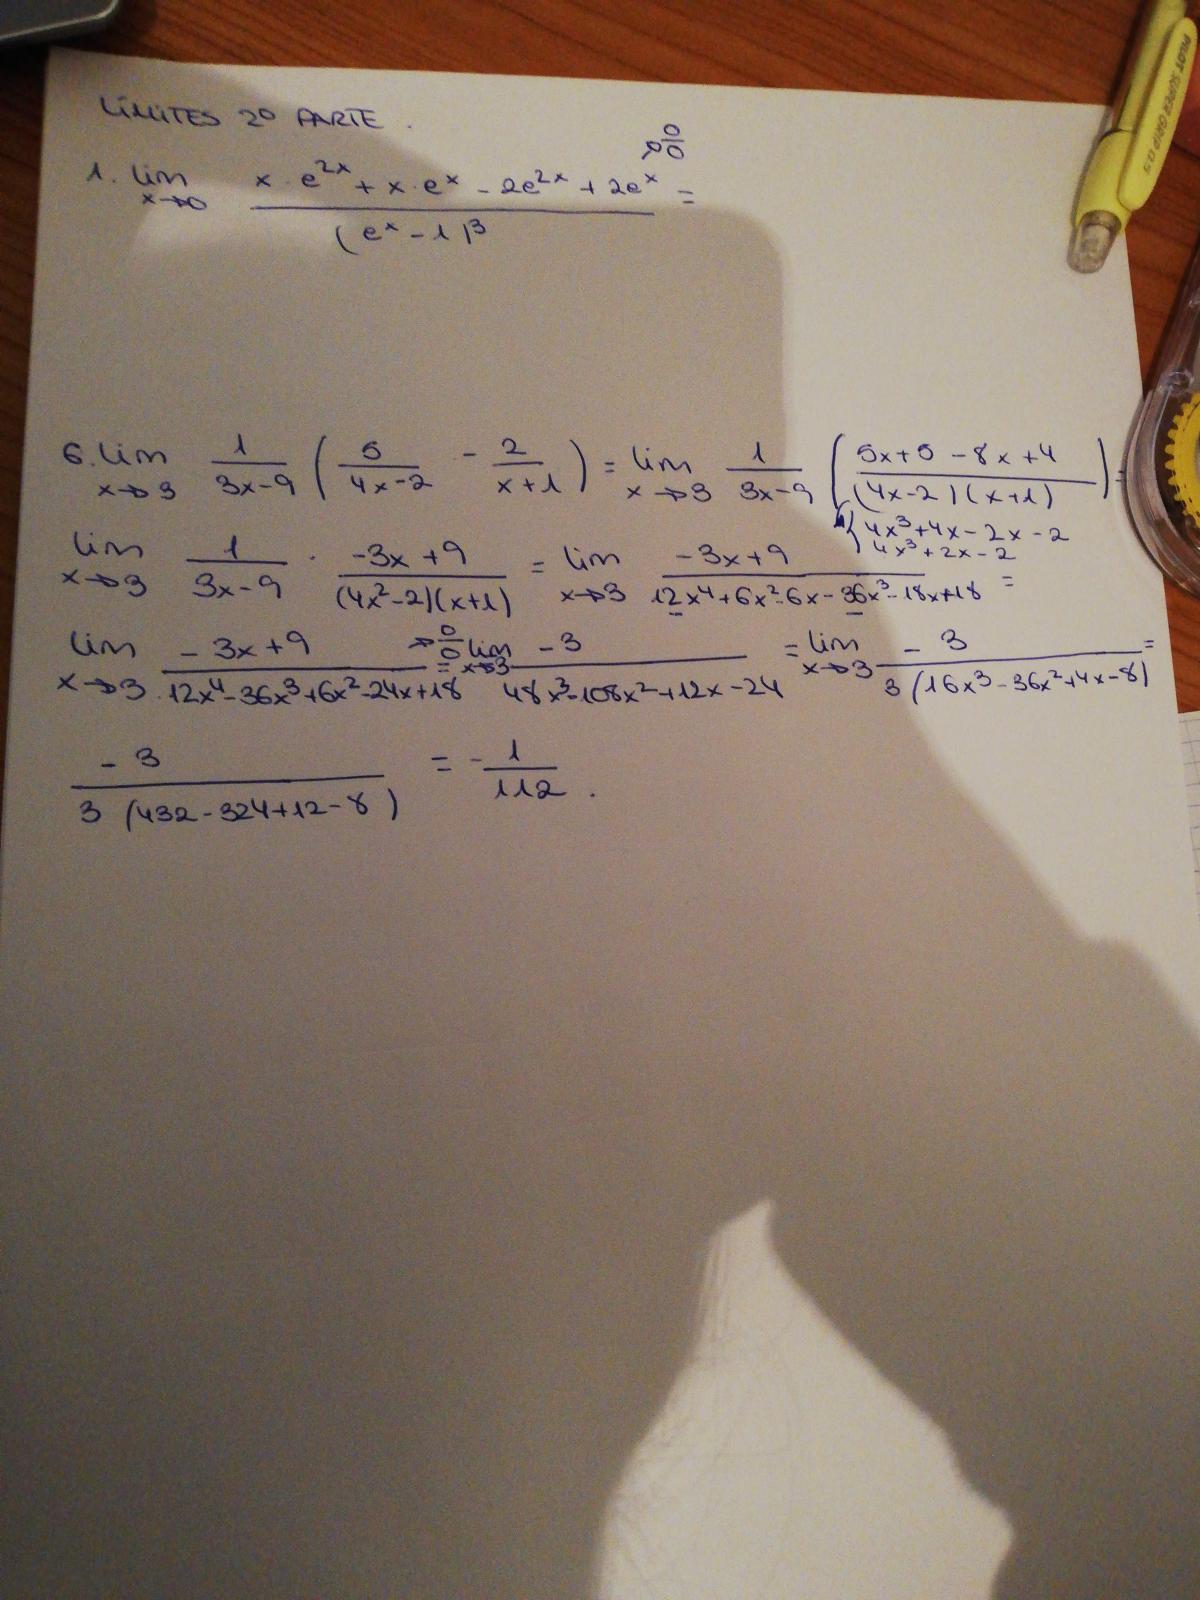 LÍMITES 2º PARTE.
1. lim x→0 (x · e^2x + x · e^x - 2e^2x + 2e^x) / (e^x - 1)^3 → 0/0 =
6. lim x→3 1/(3x-9) (5/(4x-2) - 2/(x+1)) = lim x→3 1/(3x-9) ((5x+5-8x+4)/((4x-2)(x+1))) =
4x^3+4x-2x-2
4x^3+2x-2
lim x→3 1/(3x-9) · (-3x+9)/((4x^2-2)(x+1)) = lim x→3 (-3x+9)/(12x^4+6x^2-6x-36x^3-18x+18) =
lim x→3 (-3x+9)/(12x^4-36x^3+6x^2-24x+18) → 0/0 = lim x→3 -3/(48x^3-108x^2+12x-24) = lim x→3 -3/(3(16x^3-36x^2+4x-8)) =
-3/(3(432-324+12-8)) = -1/112.
PILOT SUPER GRIP 0.5